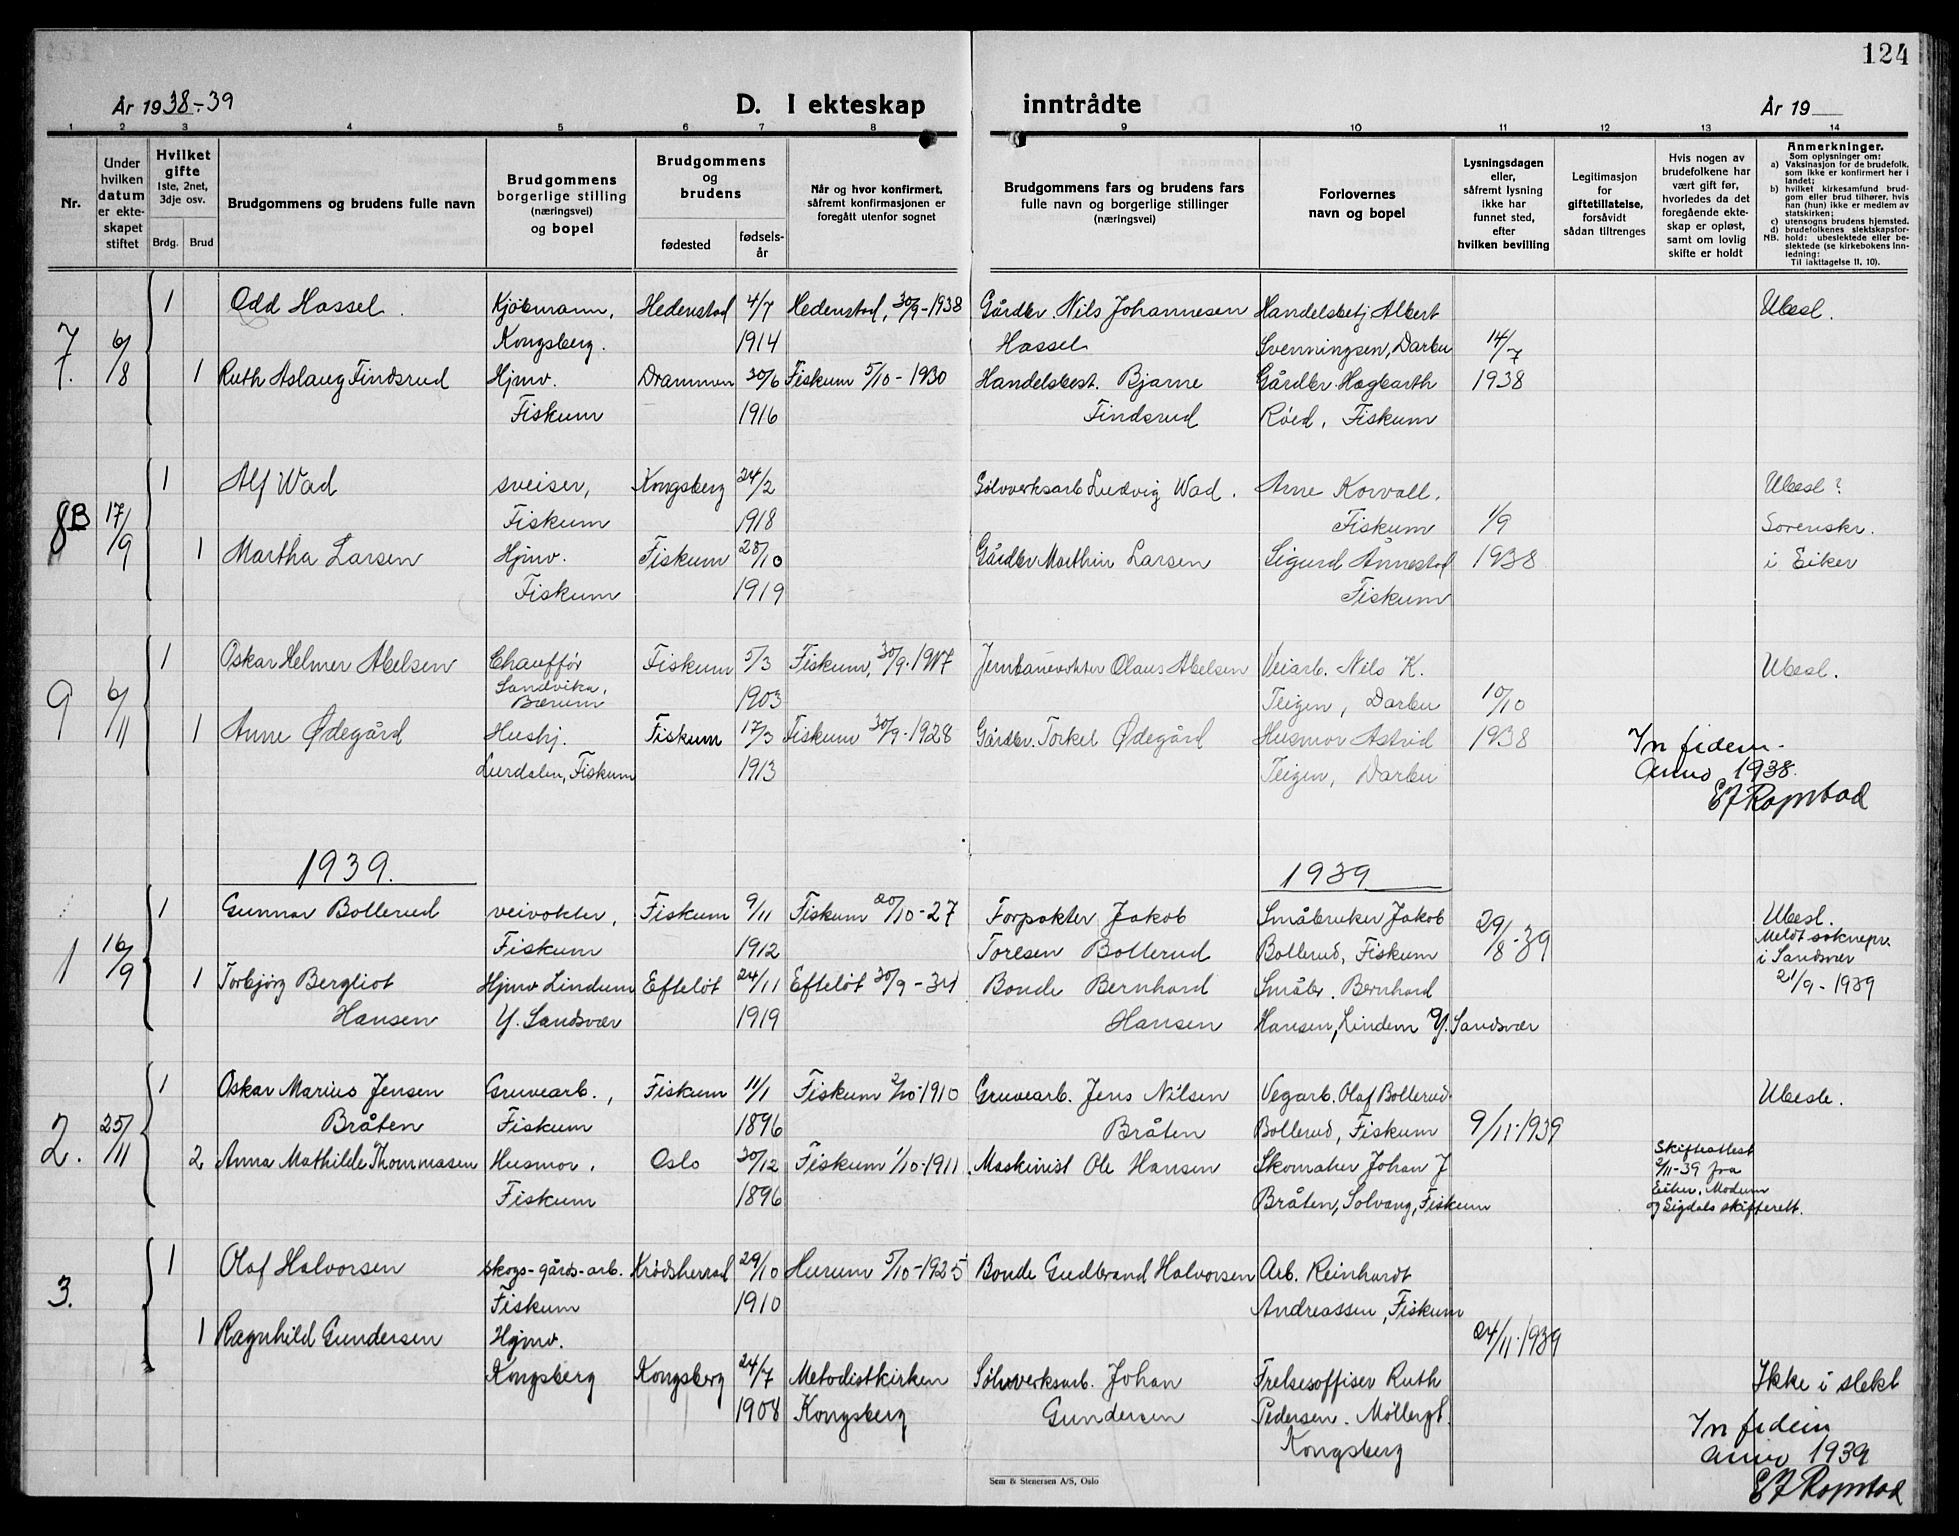 124
År 1938-39
D. I ekteskap inntrådte
År 19
1 2 3 4 5 6 7 8 9 10 11 12 13 14
Nr.
Under hvilken datum er ekteskapet stiftet
Hvilket gifte 1ste, 2net, 3dje osv.
Brdg. Brud
Brudgommens og brudens fulle navn
Brudgommens borgerlige stilling (næringsvei) og bopel
Brudgommens og brudens
fødested
fødselsår
Når og hvor konfirmert, såfremt konfirmasjonen er foregått utenfor sognet
Brudgommens fars og brudens fars fulle navn og borgerlige stillinger (næringsvei)
Forlovernes navn og bopel
Lysningsdagen eller, såfremt lysning ikke har funnet sted, efter hvilken bevilling
Legitimasjon for giftetillatelse, forsåvidt sådan tiltrenges
Hvis nogen av brudefolkene har vært gift før, hvorledes da det foregående ekteskap er opløst, samt om lovlig skifte er holdt
Anmerkninger.
Som oplysninger om:
a) Vaksinasjon for de brudefolk, som ikke er konfirmert her i landet;
b) hvilket kirkesamfund brudgom eller brud tilhører, hvis han (hun) ikke er medlem av statskirken;
c) utensogns brudens hjemsted.
d) brudefolkenes slektskapsforhold: ubeslektede eller beslektede (se kirkebokens innledning:
NB.
Til iakttagelse II, 10).
7. 6/8
1 Odd Hassel Kjöbmann, Hedenstad 4/7 Hedenstad, 30/9-1938 Gårdbr. Nils Johannesen Handelsbetj Albert Ubesl.
Kongsberg. 1914 Hassel Svenningsen, Darbu 14/7
1 Ruth Aslaug Findsrud Hjmv. Drammen 30/6 Fiskum 5/10-1930 Handelsbest. Bjarne Gårdbr. Hagbarth 1938
Fiskum 1916 Findsrud Röed, Fiskum
8B 17/9
1 Alf Wad sveiser, Kongsberg 24/2 Sölvverksarb Ludvig Wad. Arne Korvall, Ubesl?
Fiskum 1918 Fiskum 1/9 Sorenskr.
1 Martha Larsen Hjmv. Fiskum 28/10 Gårdbr Marthin Larsen Sigurd Annestad 1938 i Eiker
Fiskum 1919 Fiskum
9 6/11
1 Oskar Helmer Abelsen Chauffør Fiskum 5/3 Fiskum, 30/9-1917 Jernbanevokter Olaus Abelsen Veiarb. Nils K. Ubesl.
Sandvika, Bærum 1903 Teigen, Darbu 10/10
1 Anne Ødegård Hushj. Fiskum 17/3 Fiskum 30/9-1928 Gårdbr. Torkel Ødegård Husmor Astrid 1938
Lurdalen, Fiskum 1913 Teigen, Darbu
In fidem
Anno 1938.
EJ Ropstad
1939. 1939
1 16/9
1 Gunnar Bollerud veivokter, Fiskum 9/11 Fiskum 20/10-27 Forpakter Jakob Småbruker Jakob 29/8-39 Ubesl.
Fiskum 1912 Toresen Bollerud Bollerud, Fiskum Meldt soknepr.
i Sandsvær
1 Torbjörg Bergliot Hjmv Lindum Efteløt 24/11 Efteløt 30/9-34 Bonde Bernhard Småbr. Bernhard 21/9-1939
Hansen Y. Sandsvær 1919 Hansen Hansen, Lindem Y. Sandsvær
2. 25/11
1 Oskar Marius Jensen Gruvearb., Fiskum 11/1 Fiskum 2/10-1910 Gruvearb. Jens Nilsen Vegarb. Olaf Bollerud Ubesle.
Bråten Fiskum 1896 Bråten Bollerud, Fiskum 9/11-1939
2 Anna Mathilde Thommasen Husmor, Oslo 30/12 Fiskum 1/10-1911 Maskinist Ole Hansen Skomaker Johan J Skifteattest
Fiskum 1896 Bråten, Solvang, Fiskum 2/11-39 fra
Eiker, Modum
og Sigdals skifterett.
3.
1 Olaf Halvorsen skogs-gårds-arb. Krödsherrad 29/10 Hurum 5/10-1925 Bonde Gudbrand Halvorsen Arb. Reinhardt
Fiskum 1910 Andreassen, Fiskum
1 Ragnhild Gundersen Hjmv. 24/11-1939
Kongsberg Kongsberg 24/7 Metodistkirken Sölvverksarb. Johan Frelsesoffiser Ruth Ikke i slekt
1908 Kongsberg Gundersen Pedersen. Möllergt.
Kongsberg
In fidem
anno 1939
EJ Ropstad
Sem & Stenersen A/S, Oslo